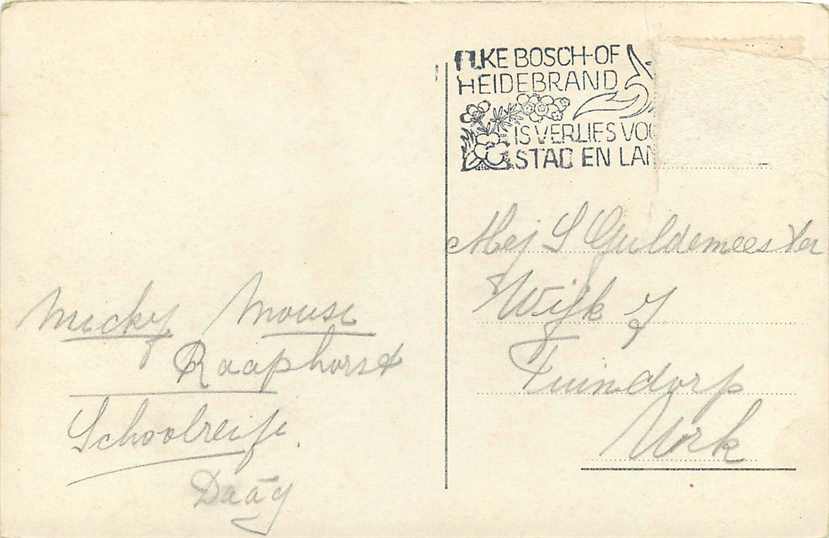 Micky Mouse
Raaphorst
Schoolreisje.
Daàg
ELKE BOSCH-OF
HEIDEBRAND
IS VERLIES VOO
STAD EN LAN
Mej S Guldemeester
Wijk 7
Tuindorp
Urk